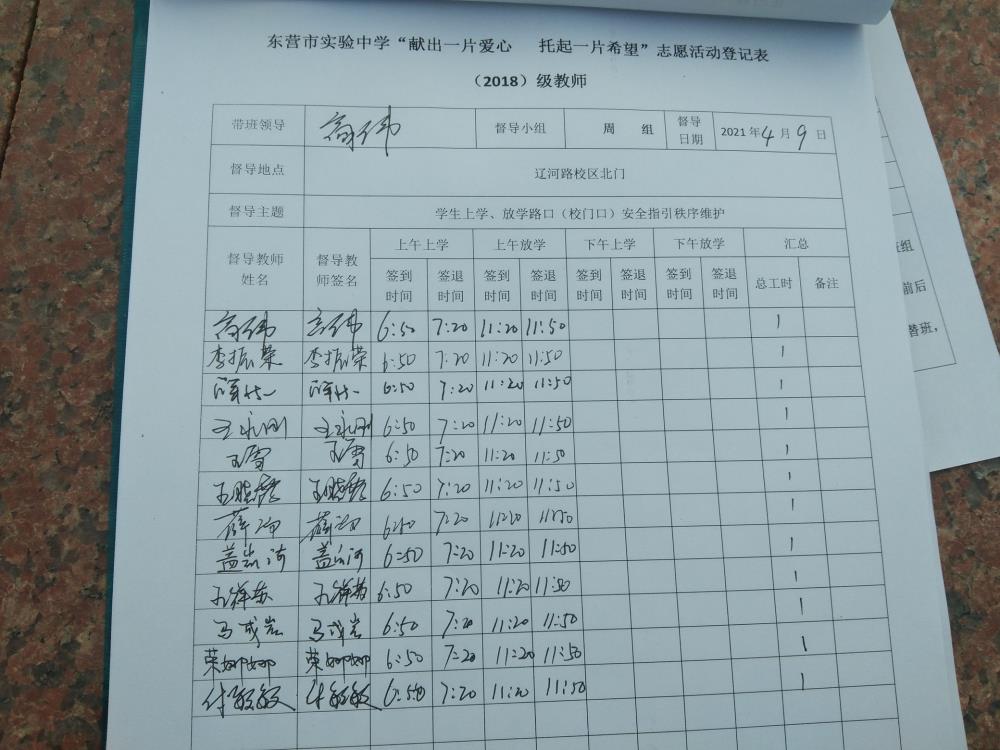 东营市实验中学“献出一片爱心 托起一片希望”志愿活动登记表
（2018）级教师
带班领导 高伟 督导小组 周 组 督导日期 2021年4月9日
督导地点 辽河路校区北门
督导主题 学生上学、放学路口（校门口）安全指引秩序维护
督导教师姓名 督导教师签名 上午上学 上午放学 下午上学 下午放学 汇总
签到时间 签退时间 签到时间 签退时间 签到时间 签退时间 签到时间 签退时间 总工时 备注
高伟 高伟 6:50 7:20 11:20 11:50 1
李振荣 李振荣 6:50 7:20 11:20 11:50 1
6:50 7:20 11:20 11:50 1
王永刚 王永刚 6:50 7:20 11:20 11:50 1
王雪 王雪 6:50 7:20 11:20 11:50 1
王晓 王晓 6:50 7:20 11:20 11:50 1
薛 薛 6:50 7:20 11:20 11:50 1
盖岩河 盖岩河 6:50 7:20 11:20 11:50 1
6:50 7:20 11:20 11:50 1
马成岩 马成岩 6:50 7:20 11:20 11:50 1
荣娜娜 荣娜娜 6:50 7:20 11:20 11:50 1
付敏敏 付敏敏 6:50 7:20 11:20 11:50 1
组
前后
替班，